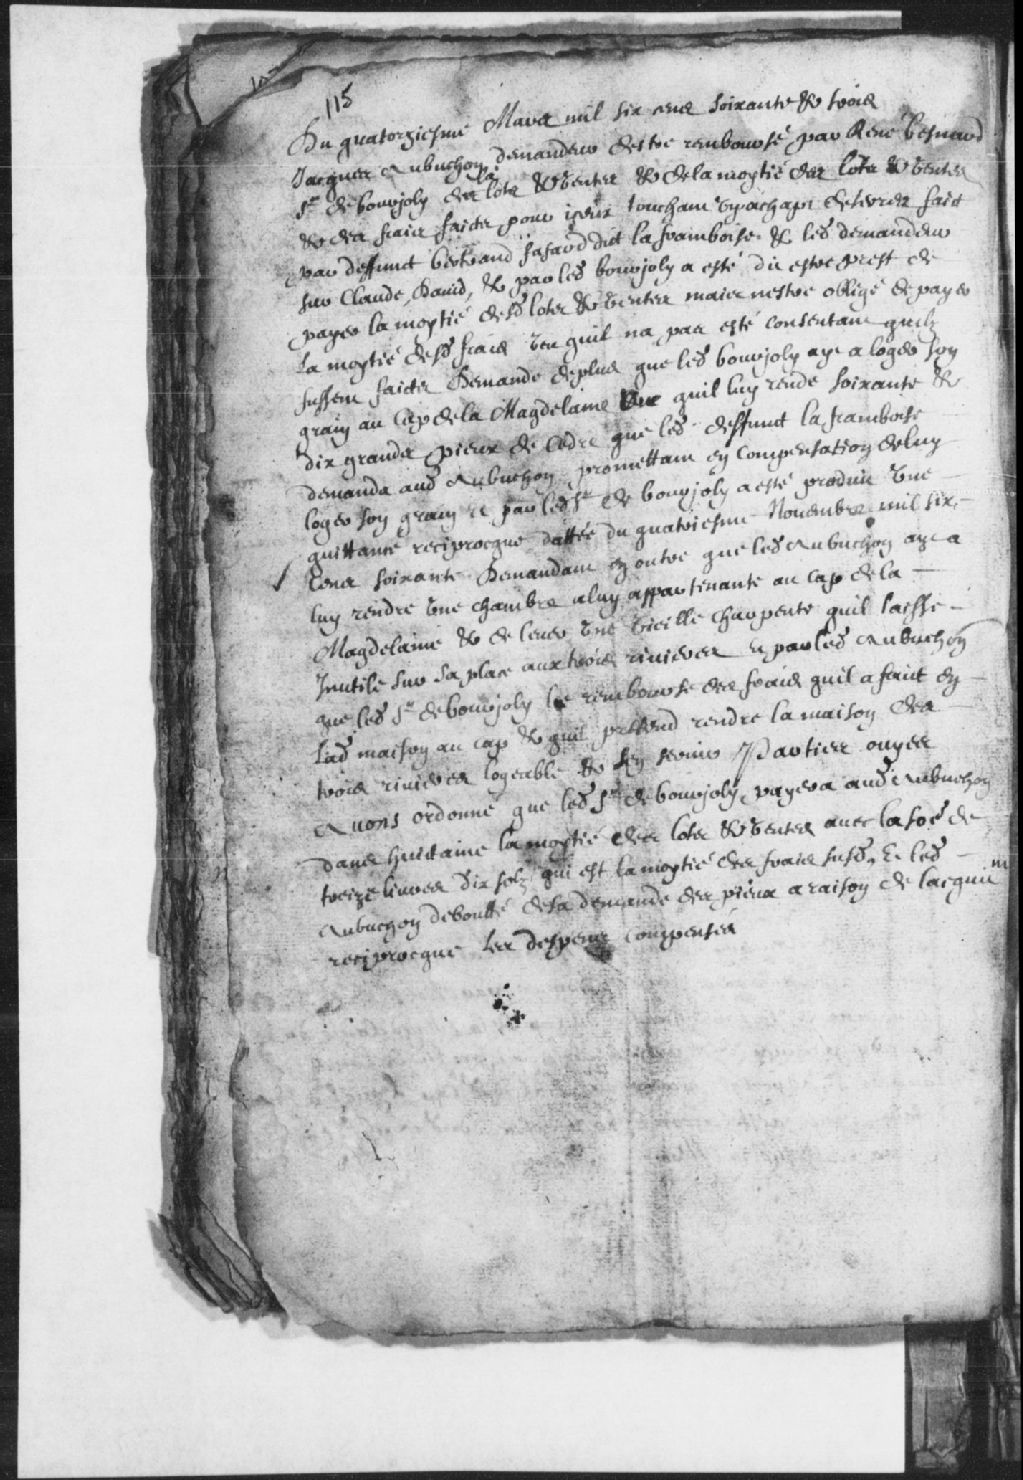 115
Du quatorziesme Mars mil six cens soixante & trois
Jacques Aubuchon demandeur destre rembourse par René Besnard
Sr. de bourjoly des lots & ventes & de la moytié des lots & ventes
& des frais faicts pour iceux touchant achapt de terres faict
par deffunct bertrand fafard dict la framboise & led demandeur
sur Claude David, & par led bourjoly a esté dit estre prest de
payer la moytié desd lots & ventes mais nestre obligé de payer
la moytié desd frais veu quil na pas esté consentant quilz
fussent faicts Demande deplus que led bourjoly aye a loger son
grain au Cap de la Magdelaine quil luy rende soixante &
dix grands pieux de Cedre que led deffunct la framboise
demanda aud Aubuchon promettant en compensation de luy
loger son grain et par led Sr de bourjoly a esté produit une
quittance reciprocque dattée du quatriesme Novembre mil six
Cens soixante Demandant en outre que led Aubuchon aye a
luy rendre une chambre a luy appartenante au Cap de la
Magdelaine & de lever une vieille charpente quil laisse
Inutile sur sa place aux trois rivieres et par led Aubuchon
que led Sr. de bourjoly le rembourse des frais quil a faict en
lad maison au Cap & quil pretend rendre la maison des
trois rivieres logeable & sen servir Parties ouyes
Avons ordonné que led Sr de bourjoly payera aud Aubuchon
dans huictaine la moytié des lots & ventes avec la soe de
treize livres dix solz qui est la moytié des frais susd. Et led
Aubuchon deboutté de sa demande des pieux a raison de lacquit
reciprocque les despens compensés